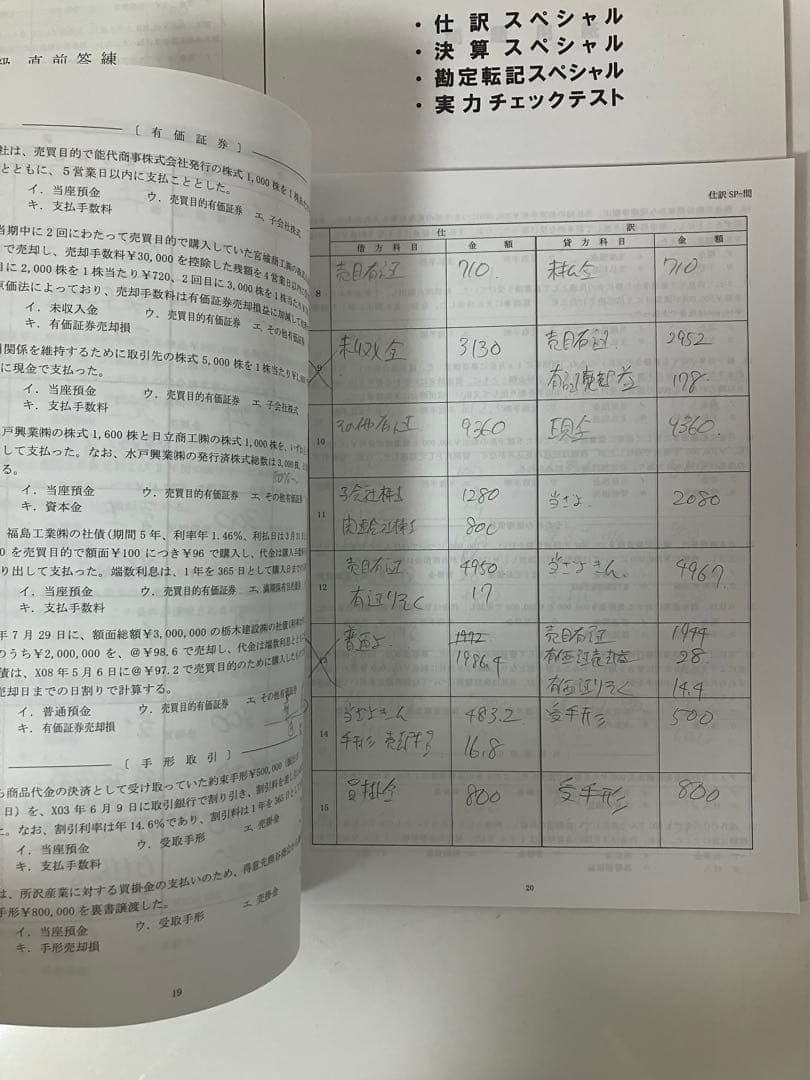 直前答練
・仕訳スペシャル
・決算スペシャル
・勘定転記スペシャル
・実力チェックテスト
[ 有価証券 ]
社は、売買目的で能代商事株式会社発行の株式1,000株を1株
とともに、5営業日以内に支払こととした。
イ. 当座預金 ウ. 売買目的有価証券 エ. 子会社株式
キ. 支払手数料
当期中に2回にわたって売買目的で購入していた宮城商工㈱の
で売却し、売却手数料¥30,000を控除した残額を4営業日以内に
目に2,000株を1株当たり¥720、2回目に3,000株を1株当たり
原価法によっており、売却手数料は有価証券売却損益に加減して
イ. 未収入金 ウ. 売買目的有価証券 エ. その他有価証券
キ. 有価証券売却損
関係を維持するために取引先の株式5,000株を1株当たり
に現金で支払った。
イ. 当座預金 ウ. 売買目的有価証券 エ. 子会社株式
キ. 支払手数料
戸興業㈱の株式1,600株と日立商工㈱の株式1,000株を、
して支払った。なお、水戸興業㈱の発行済株式総数は3,000株、
る。
イ. 当座預金 ウ. 売買目的有価証券 エ. その他有価証券
キ. 資本金
福島工業㈱の社債(期間5年、利率年1.46%、利払日は3月
0を売買目的で額面¥100につき¥96で購入し、代金は購入手数料
り出して支払った。端数利息は、1年を365日として購入日まで
イ. 当座預金 ウ. 売買目的有価証券 エ. 満期保有目的債券
キ. 支払手数料
年7月29日に、額面総額¥3,000,000の栃木建設㈱の社債
のうち¥2,000,000を、@¥98.6で売却し、代金は端数利息とともに
債は、X08年5月6日に@¥97.2で売買目的のために購入したもの
売却日までの日割りで計算する。
イ. 普通預金 ウ. 売買目的有価証券 エ. その他有価証券
キ. 有価証券売却損
[ 手形取引 ]
も商品代金の決済として受け取っていた約束手形¥500,000
日)を、X03年6月9日に取引銀行で割り引き、割引料を差し
た。なお、割引利率は年14.6%であり、割引料は1年を365日
イ. 当座預金 ウ. 受取手形 エ. 売掛金
キ. 支払手数料
は、所沢産業に対する買掛金の支払いのため、得意先熊谷商会
手形¥800,000を裏書譲渡した。
イ. 当座預金 ウ. 受取手形 エ. 売掛金
キ. 手形売却損
19
仕訳SP-問
仕訳
借方科目 金額 貸方科目 金額
8 売目有証 710 未払金 710
9 未収入金 3130 売目有証 2952
有証売却益 178
10 その他有証 9360 現金 9360
11 子会社株式 1280 当さよ 2080
関連会社株式 800
12 売目有証 4950 当さよきん 4967
有証りそく 17
13 普通よ 1972 売目有証 1944
1986.4 有価証売却益 28
有価証りそく 14.4
14 当さよきん 483.2 受手形 500
手形売却損 16.8
15 買掛金 800 受手形 800
20